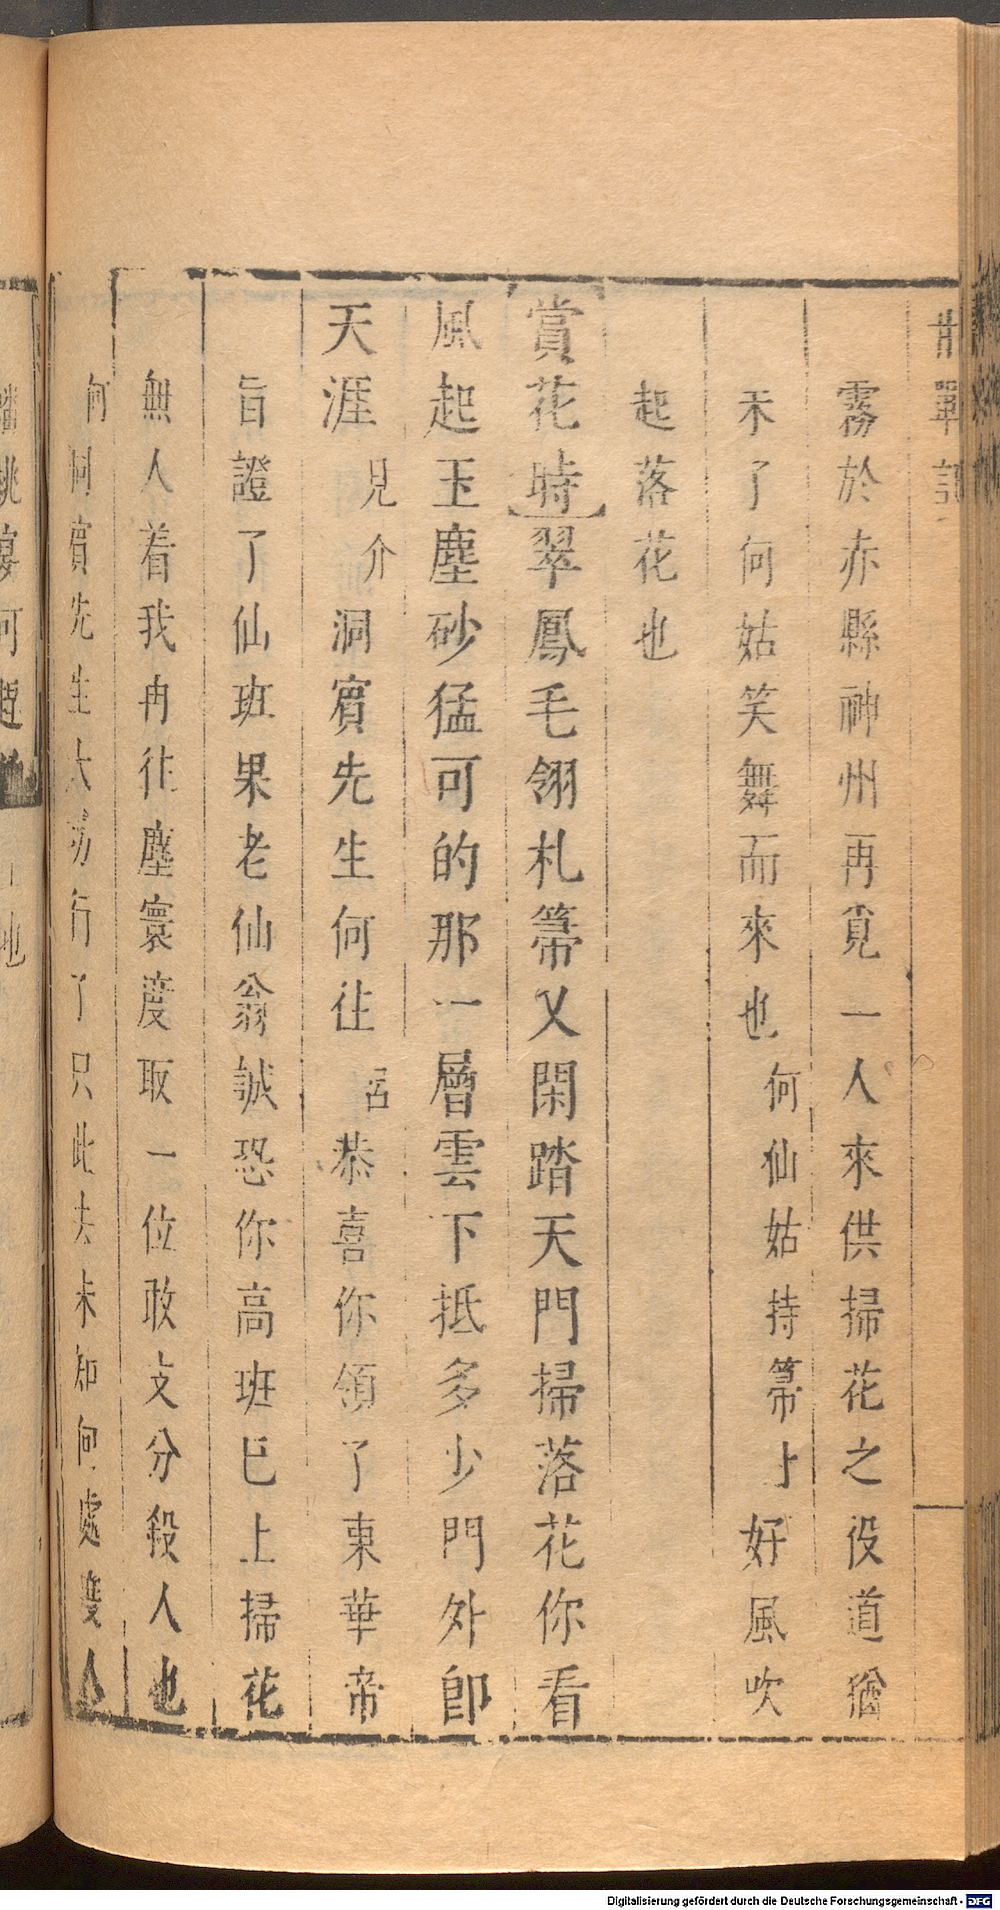 邯單記
霧於赤縣神州再覓一人來供掃花之役道猶
未了何姑笑舞而來也 何仙姑持箒上 好風吹
起落花也
賞花時翠鳳毛翎札箒叉閑踏天門掃落花你看
風起玉塵砂猛可的那一層雲下抵多少門外卽
天涯 見介 洞賓先生何往 呂 恭喜你領了東華帝
旨證了仙班果老仙翁誠恐你高班已上掃花
無人着我冉往塵寰度取一位敢支分殺人也
何 洞賓先生大功行了只此去未知何處度人
蟠桃宴可趕
地
Digitalisierung gefördert durch die Deutsche Forschungsgemeinschaft - DFG